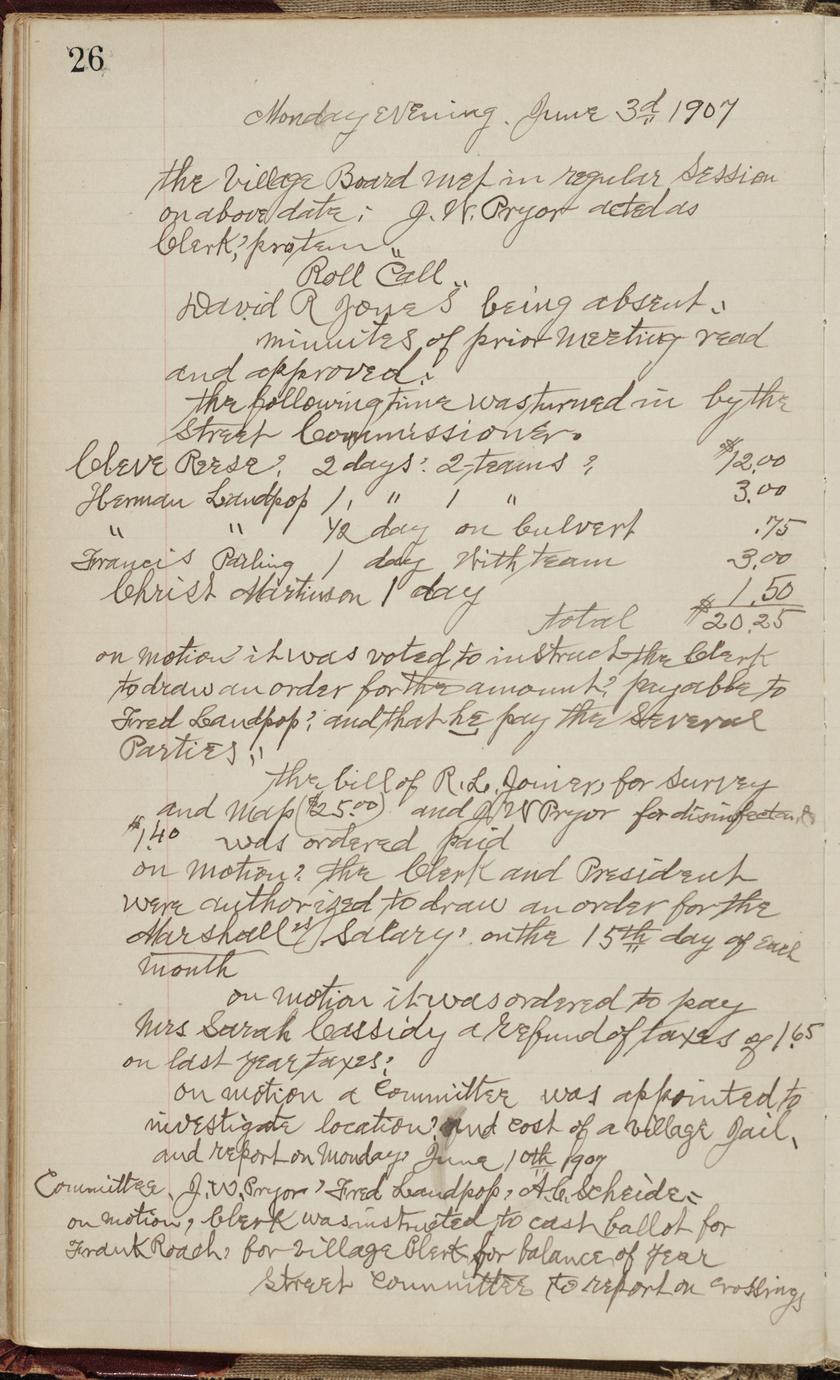 26
Monday evening. June 3d 1907
the Village Board met in regular Session
on above date; J. W. Pryor acted as
Clerk, protem"
Roll Call"
David R Jones being absent.
minuites of prior Meeting read
and approved.
the following time was turned in by the
Street Commissioner.
Cleve Reese, 2 days: 2-teams, $12.00
Herman Landpop 1, " 1 " 3.00
" " 1/2 day on Culvert .75
Francis Parling 1 day With team 3.00
Christ Martinson 1 day 1.50
total $20.25
on motion it was voted to instruct the Clerk
to draw an order for the amount, payable to
Fred Landpop, and that he pay the Several
Parties,"
the bill of R. L. Joiner, for Survey
and Map ($25.00) and J W Pryor for
$1.40 was ordered paid
on motion, the Clerk and President
were authorized to draw an order for the
Marshall's Salary, on the 15th day of each
month
on motion it was ordered to pay
Mrs Sarah Cassidy a refund of taxes of 1.65
on last year taxes.
on motion a Committee was appointed to
investigate location, and cost of a village Jail,
and report on Monday, June 10th 1907
Committee, J. W. Pryor, Fred Landpop, A. C. Scheide.
on motion, Clerk was instructed to cast ballot for
Frank Roach, for Village Clerk for balance of year
Street Committee to report on Crossings